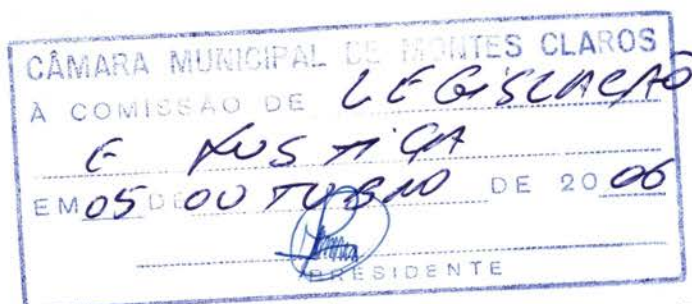 CÂMARA MUNICIPAL DE MONTES CLAROS
À COMISSÃO DE LEGISLAÇÃO
E JUSTIÇA
EM 05 DE OUTUBRO DE 2006
PRESIDENTE